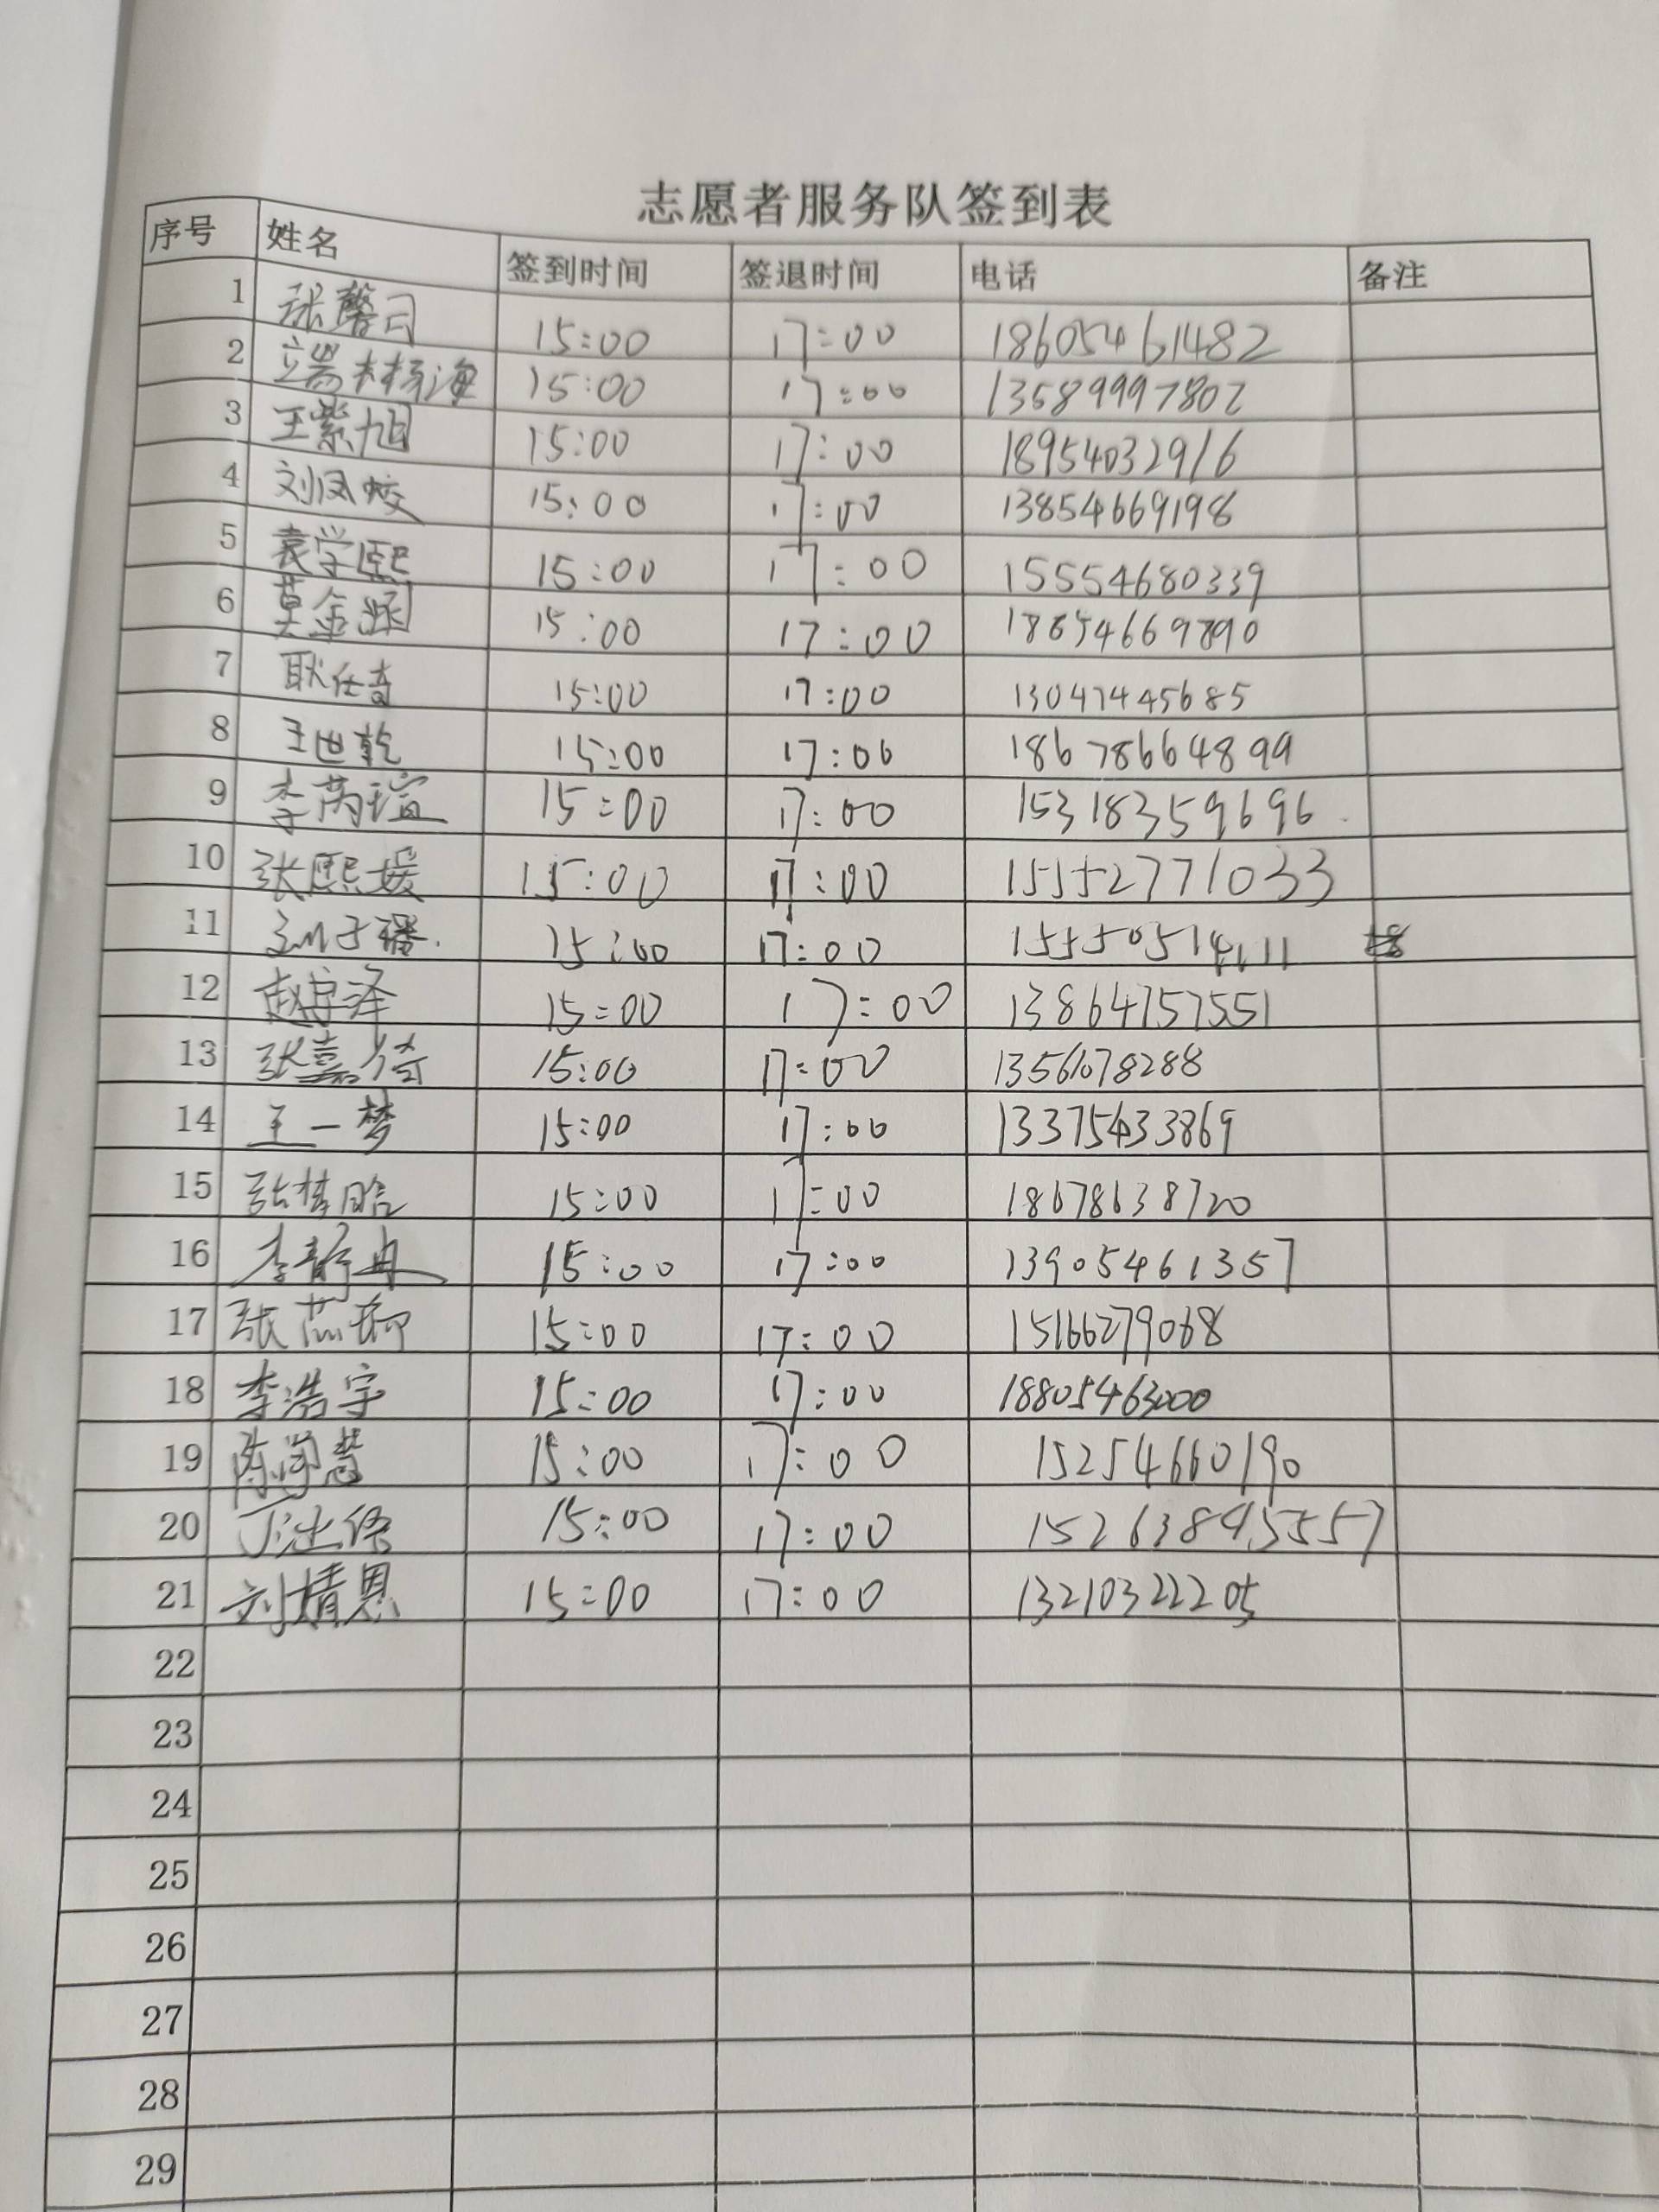 志愿者服务队签到表
序号 姓名 签到时间 签退时间 电话 备注
1 张馨月 15:00 17:00 18605461482
2 15:00 17:00 13589997802
3 王紫旭 15:00 17:00 18954032916
4 刘凤姣 15:00 17:00 13854669198
5 袁学熙 15:00 17:00 15554680339
6 莫金涵 15:00 17:00 18654669890
7 耿任奇 15:00 17:00 13047445685
8 王世乾 15:00 17:00 18678664899
9 李芮瑄 15:00 17:00 15318359696
10 张熙媛 15:00 17:00 15552771033
11 15:00 17:00
12 赵宇泽 15:00 17:00 13864757551
13 张嘉倚 15:00 17:00 1356078288
14 王一梦 15:00 17:00 13375433869
15 张梦晗 15:00 17:00 18678638720
16 李静冉 15:00 17:00 13905461357
17 张芯柳 15:00 17:00 15166279068
18 李浩宇 15:00 17:00 18805463000
19 15:00 17:00 15254660190
20 15:00 17:00
21 刘婧恩 15:00 17:00 13210322205
22
23
24
25
26
27
28
29